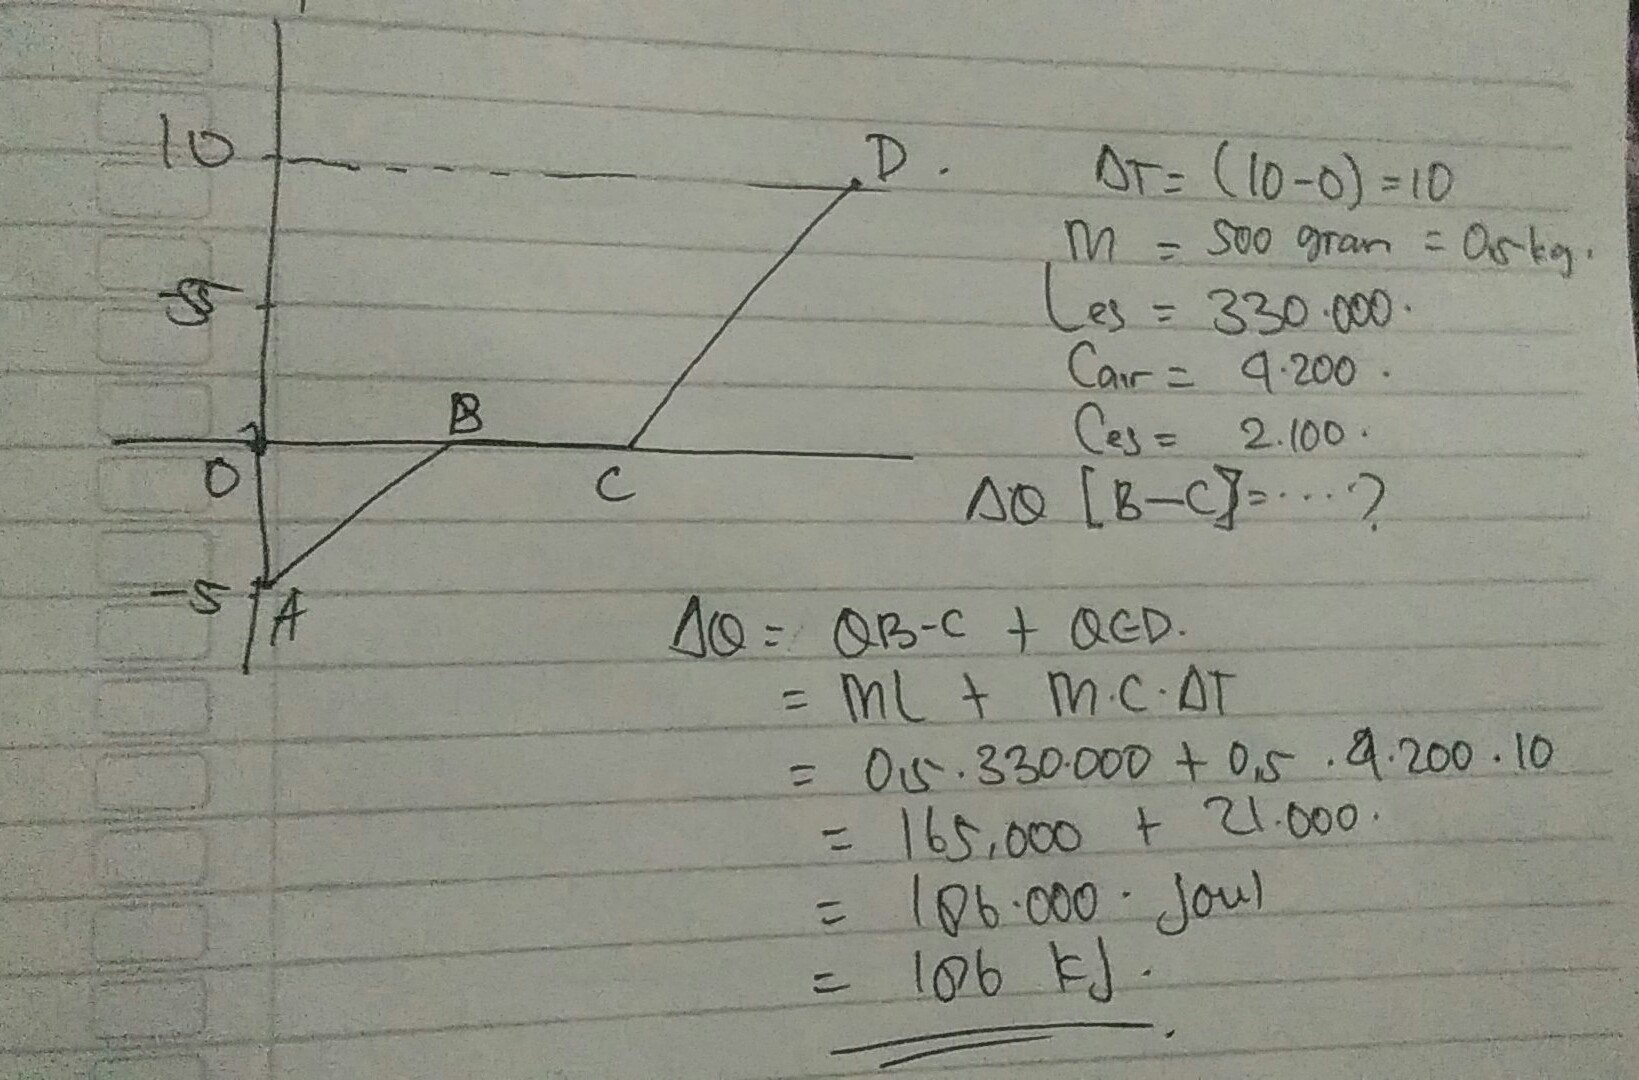 10
D.
5
B
0
C
-5
A
ΔT = (10-0) = 10
m = 500 gram = 0,5 kg.
Les = 330.000.
Cair = 4.200.
Ces = 2.100.
ΔQ [B-C] = ....?
ΔQ = QB-C + QC-D.
= mL + m.c.ΔT
= 0,5.330.000 + 0,5.4.200.10
= 165.000 + 21.000.
= 186.000. Joul
= 186 kJ.